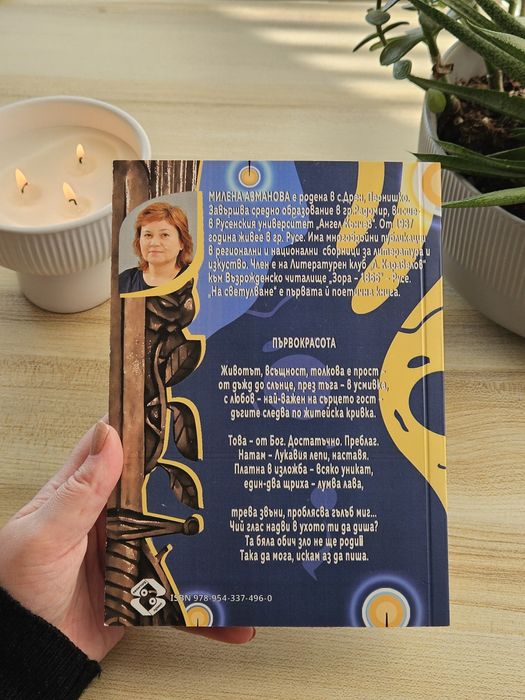 МИЛЕНА АВМАНОВА е родена в с.Дрен, Пернишко.
Завършва средно образование в гр.Радомир, висше -
в Русенския университет „Ангел Кънчев“. От 1987
година живее в гр. Русе. Има многобройни публикации
в регионални и национални сборници за литература и
изкуство. Член е на Литературен клуб „Л. Каравелов“
към Възрожденско читалище „Зора – 1866“ - Русе.
„На светулване“ е първата ѝ поетична книга.
ПЪРВОКРАСОТА
Животът, всъщност, толкова е прост -
от дъжд до слънце, през тъга – в усмивка,
с любов – най-важен на сърцето гост –
дъгите следва по житейска кривка.
Това – от Бог. Достатъчно. Преблаг.
Натам – Лукавия лепи, наставя.
Платна в изложба – всяко уникат,
един-два щриха – лумва лава,
трева звъни, проблясва гълъб миг...
Чий глас надви в ухото ти да диша?
Та бяла обич зло не ще роди
Така да мога, искам аз да пиша.
ISBN 978-954-337-496-0